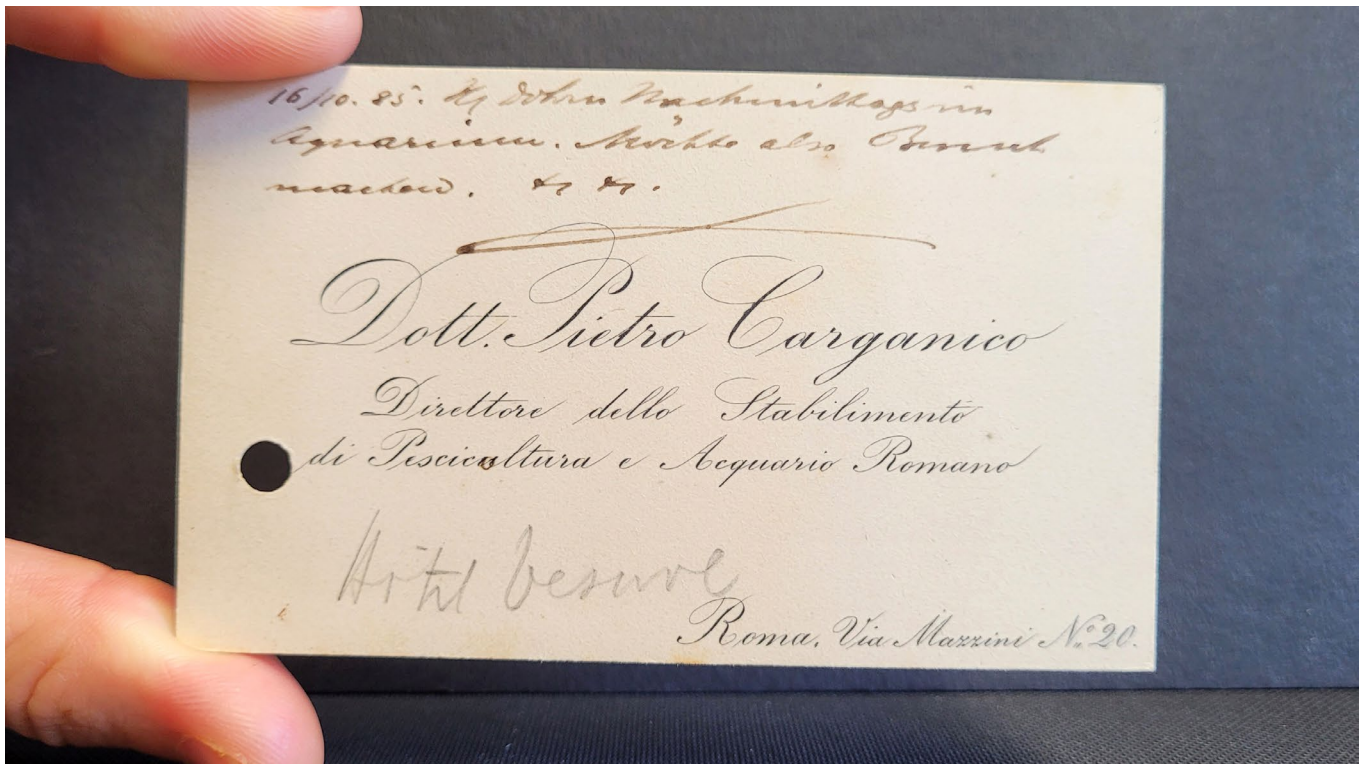 16/10. 85. Hr Dohrn Nachmittags im
Aquarium. Möchte also Besuch
machen.
Dott. Pietro Carganico
Direttore dello Stabilimento
di Pescicultura e Acquario Romano
Hôtel Vesuve
Roma, Via Mazzini Nº 20.